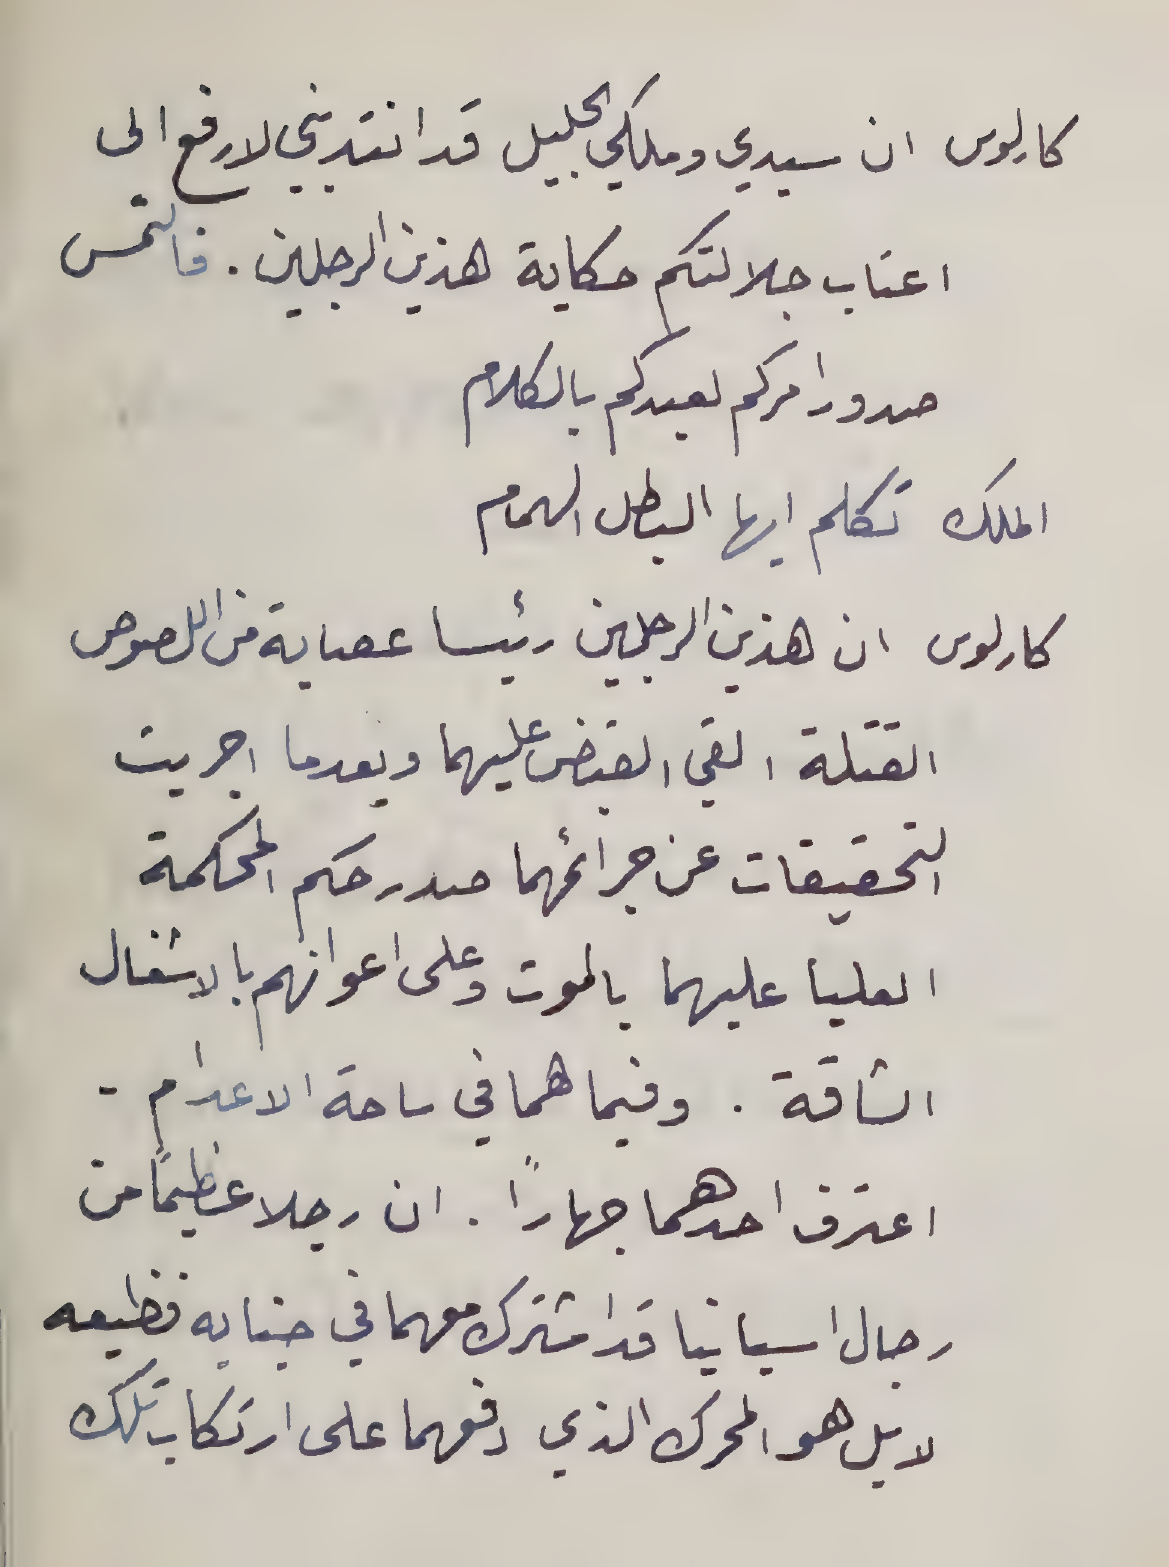 كارلوس ان سيدي وملكي الجليل قد انتدبني لارفع الى
اعتاب جلالتكم حكاية هذين الرجلين . فالتمس
صدور امركم لعبدكم بالكلام
الملك تكلم ايها البطل الهمام
كارلوس ان هذين الرجلين رئيسا عصابة من اللصوص
القتلة القي القبض عليهما وبعدما اجريت
التحقيقات عن جرائمهما صدر حكم المحكمة
العليا عليهما بالموت وعلى اعوانهم بالاشغال
الشاقة . وفيما هما في ساحة الاعدام -
اعترف احدهما جهاراً . ان رجلا عظيماً من
رجال اسبانيا قد اشترك معهما في جنايه فظيعه
لا بل هو المحرك الذي دفعهما على ارتكاب تلك